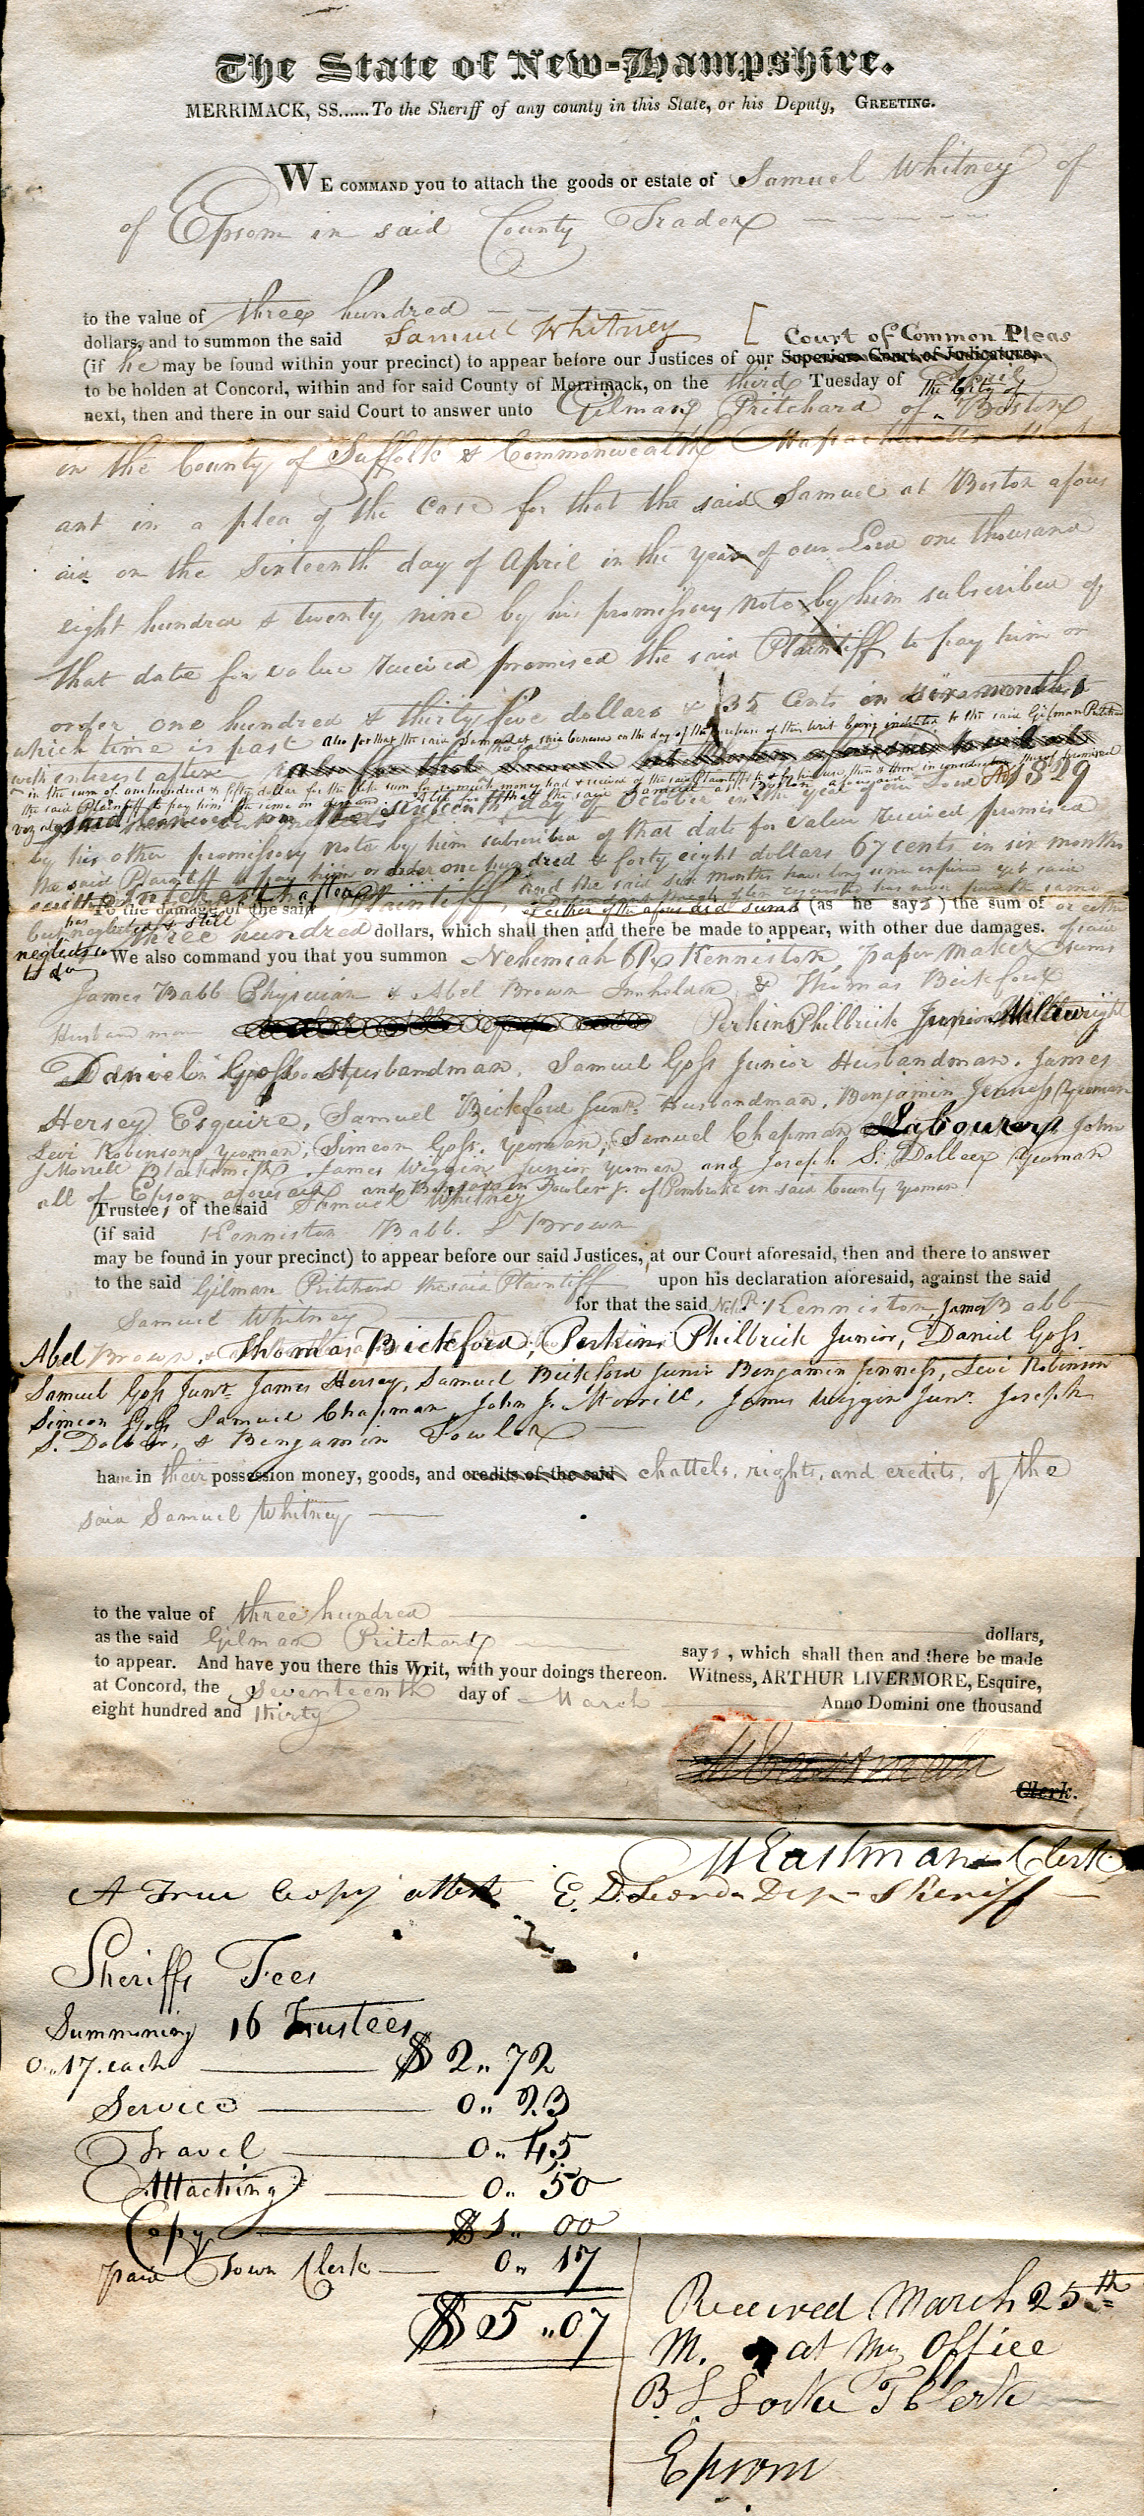 The State of New-Hampshire.
MERRIMACK, SS......To the Sheriff of any county in this State, or his Deputy, GREETING.
WE COMMAND you to attach the goods or estate of Samuel Whitney of
of Epsom in said County Trader
to the value of three hundred
dollars, and to summon the said Samuel Whitney [ Court of Common Pleas
(if he may be found within your precinct) to appear before our Justices of our Superior Court of Judicature,
to be holden at Concord, within and for said County of Merrimack, on the third Tuesday of April
next, then and there in our said Court to answer unto Gilman Pritchard of the City of Boston
in the County of Suffolk & Commonwealth Massachusetts
ant in a plea of the case for that the said Samuel at Boston afores
aid on the sixteenth day of April in the year of our Lord one thousand
eight hundred & twenty nine by his promissory note by him subscribed of
that date for value received promised the said Plaintiff to pay him or
order one hundred & thirty five dollars & 35 Cents in six months
which time is past also for that the said Samuel at said on the day of the purchase of this writ being indebted to the said Gilman Pritchard
with interest after
in the sum of one hundred & fifty dollars for the like sum for so much money had & received
the said Plaintiff to pay him the same on demand Also for that the said Samuel at Boston aforesaid
sixteenth day of October in the year of our Lord 1829
by his other promissory note by him subscribed of that date for value received promised
the said Plaintiff to pay him or order one hundred & forty eight dollars 67 cents in six months
and the said six months have long since
To the damage of the said Plaintiff, as either of the aforesaid sums (as he says) the sum of or either
but has neglected & still three hundred dollars, which shall then and there be made to appear, with other due damages. of said
neglects so We also command you that you summon Nehemiah P. Kenniston, paper maker sums
to do James Babb Physician & Abel Brown Innholder & Thomas Bickford
Husbandman Perkins Philbrick Junior Millwright
Daniel Goss Husbandman, Samuel Goss Junior Husbandman, James
Hersey Esquire, Samuel Bickford Junr. Husbandman, Benjamin Jenness Yeoman
Levi Robinson yeoman, Simeon Goss yeoman, Samuel Chapman Labourer John
J Morrill Blacksmith James Wiggin Junior yeoman and Joseph S. Dolbeer Yeoman
all of Epsom aforesaid and Benjamin Fowler jr. of Pembroke in said County yeoman
Trustees of the said Samuel Whitney
(if said Kenniston Babb & Brown
may be found in your precinct) to appear before our said Justices, at our Court aforesaid, then and there to answer
to the said Gilman Pritchard the said Plaintiff upon his declaration aforesaid, against the said
Samuel Whitney for that the said Neh. P. Kenniston James Babb
Abel Brown, Thomas Bickford, Perkins Philbrick Junior, Daniel Goss
Samuel Goss Junr. James Hersey, Samuel Bickford Junior Benjamin Jenness, Levi Robinson
Simeon Goss Samuel Chapman, John J. Morrill, James Wiggin Junr. Joseph
S. Dolbeer, & Benjamin Fowler
have in their possession money, goods, and credits of the said chattels, rights, and credits, of the
said Samuel Whitney
to the value of three hundred dollars,
as the said Gilman Pritchard says, which shall then and there be made
to appear. And have you there this Writ, with your doings thereon. Witness, ARTHUR LIVERMORE, Esquire,
at Concord, the Seventeenth day of March Anno Domini one thousand
eight hundred and thirty
Clerk.
M Eastman Clerk
A True Copy attest E. D. Leonde Dep Sheriff
Sheriffs Fees
Summoning 16 Trustees
0..17. each $ 2.. 72
Service 0.. 23
Travel 0.. 45
Attaching 0.. 50
Copy $ 1.. 00
paid Town Clerk 0.. 17
$ 5 ..07
Received March 25th
M. at My Office
B. L. Locke T Clerk
Epsom